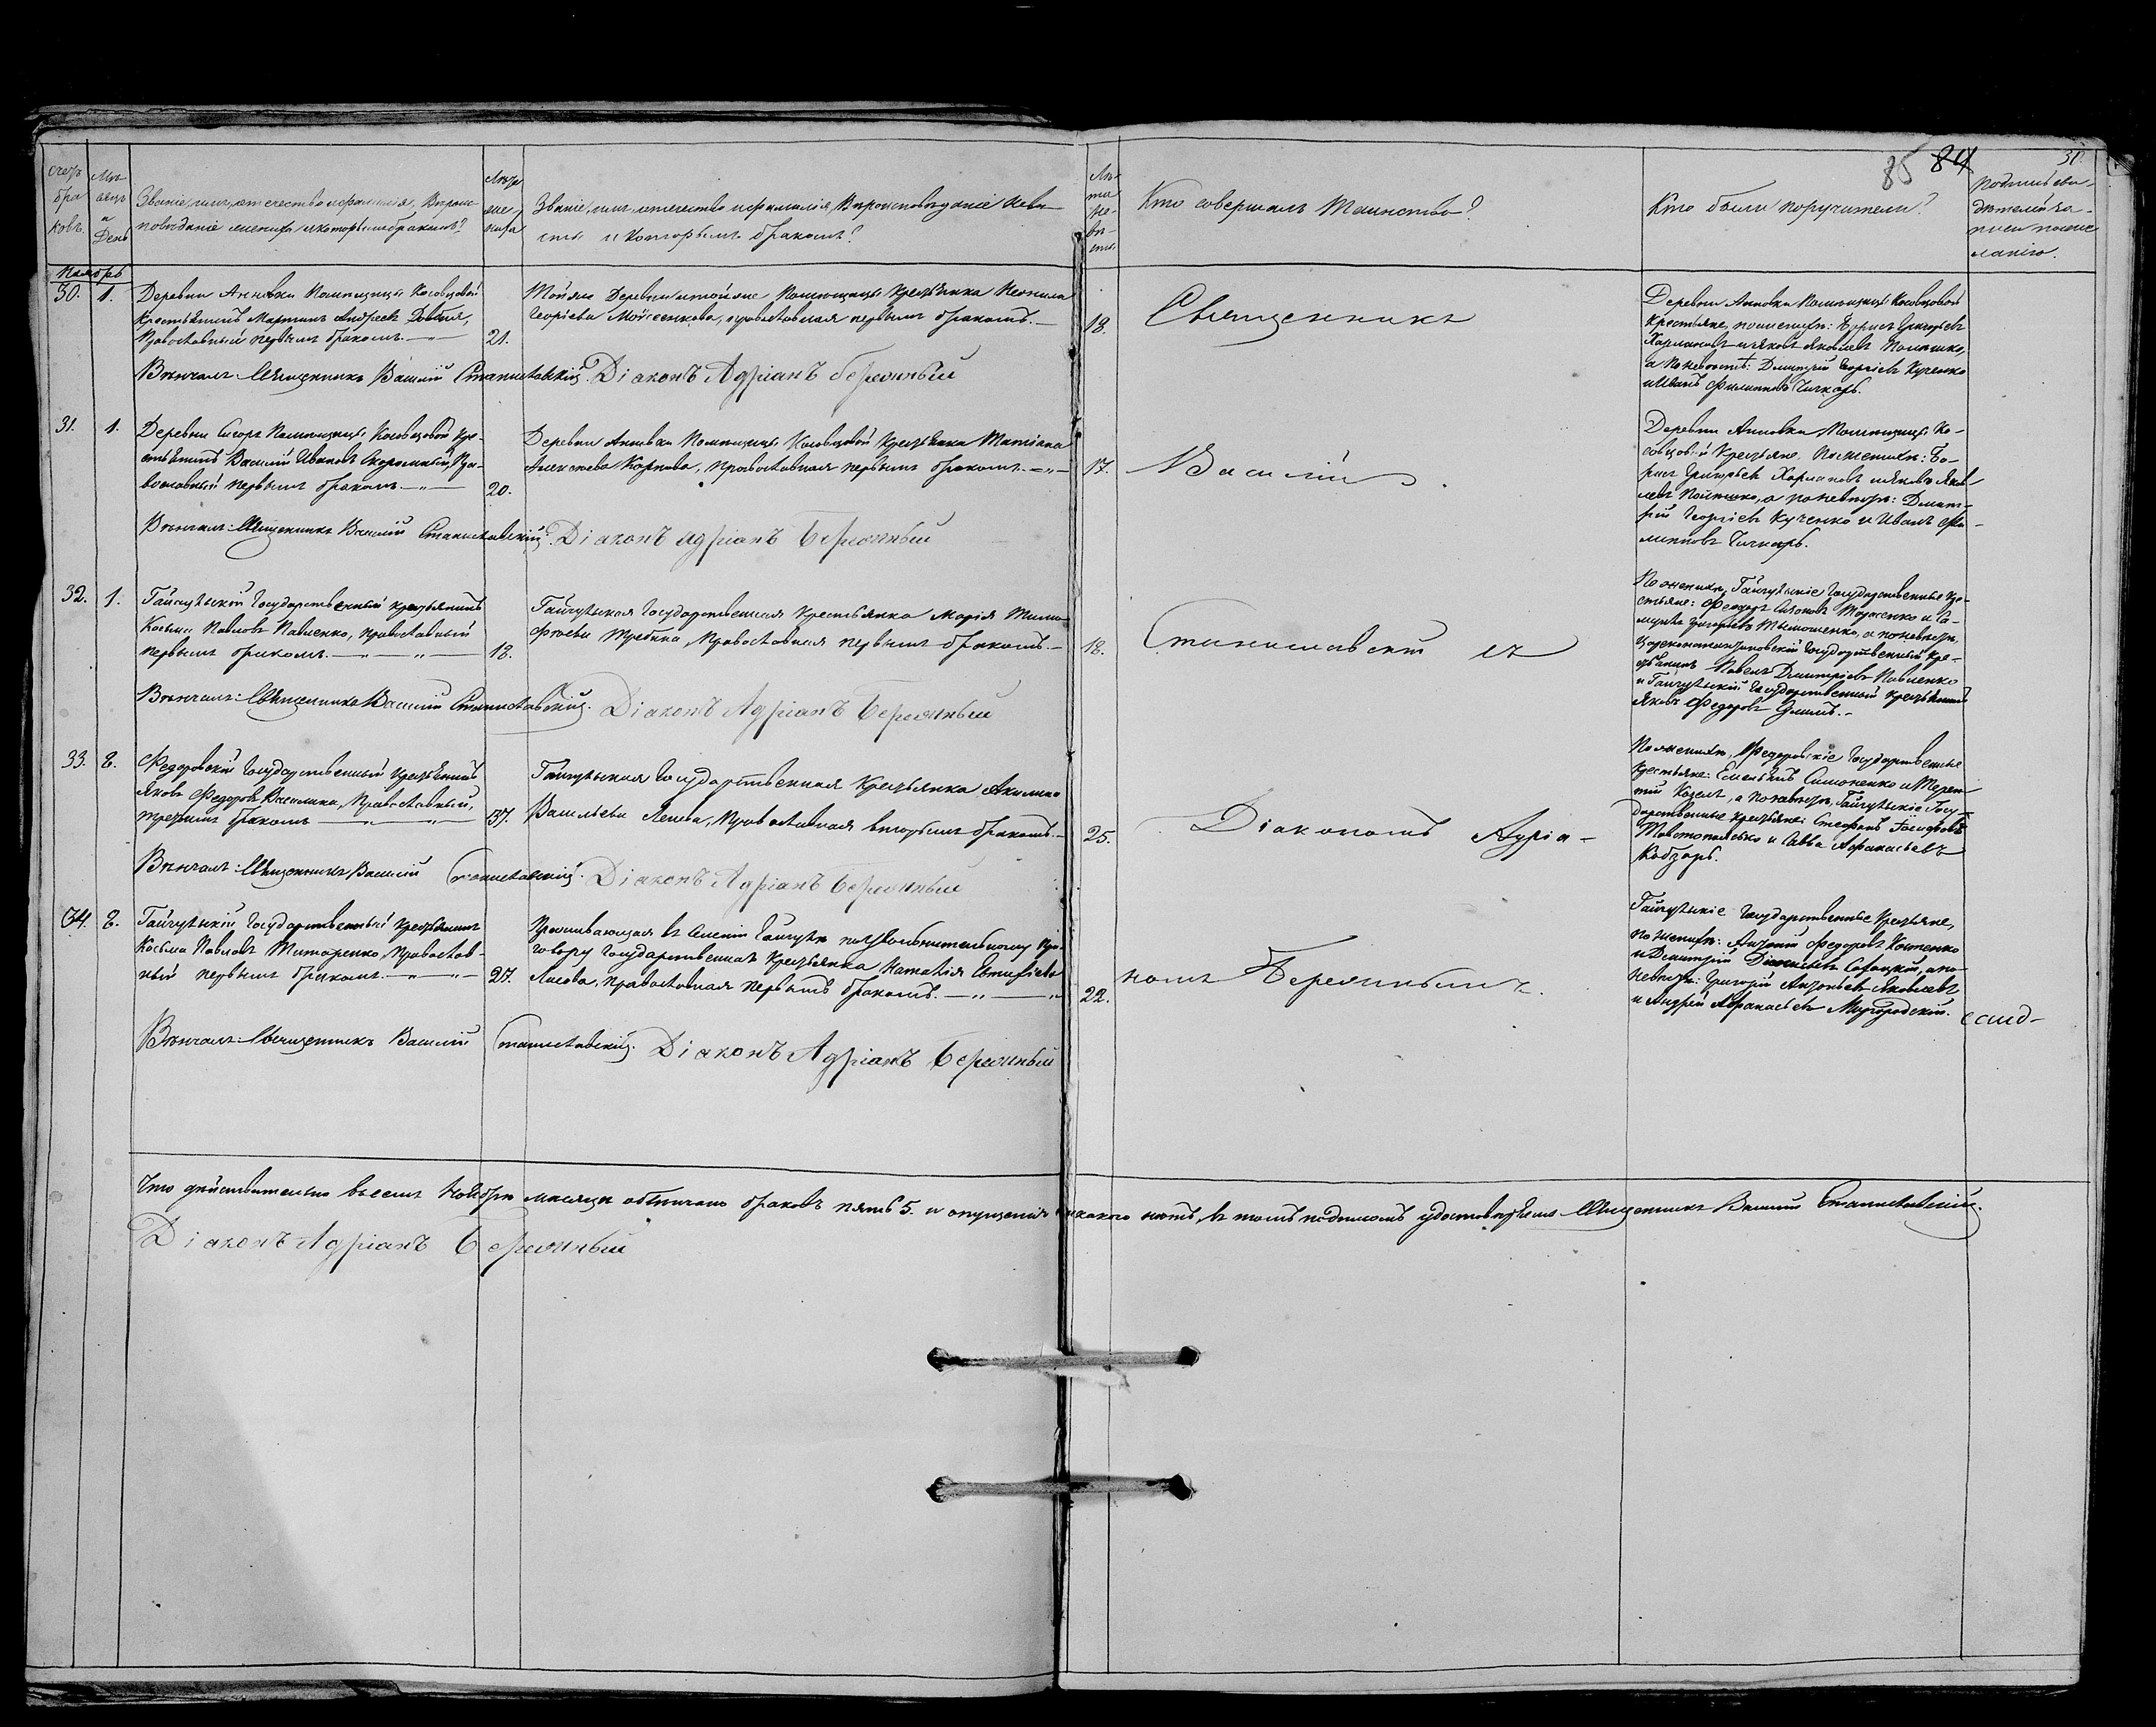 85 84
30
Счетъ бра ковъ.
Мѣ сяцъ и День
Званіе, имя, отчество и фамилія, Вѣроис-
повѣданіе жениха и которымъ бракомъ?
Лѣта
же-
ниха
Званіе, имя, отчество и фамилія, Вѣроисповѣданіе невѣ-
сты и которымъ бракомъ?
Лѣ-
та
не-
вѣ-
сты.
Кто совершалъ Таинство?
Кто были поручители?
Подпись сви-
дѣтелей за-
писи по же-
ланію.
Ноябрь
30. 1.
Деревни Анновки Помѣщицы Косовцовой
Крестьянинъ Мартинъ Андреевъ
Православный первымъ бракомъ.
21.
Той же Деревни и той же Помѣщицы Крестьянка Неонила
Георгіева Мойсеенкова, православная первымъ бракомъ.
18.
Священникъ
Деревни Анновки Помѣщицы Косовцовой
Крестьяне, по женихѣ: Борисъ Григорьевъ
Харлановъ и Яковъ Яковлевъ
а По невѣстѣ: Димитрій Георгіевъ Кученко
и Иванъ Филиповъ Чичкарь.
Вѣнчалъ: Священникъ Василій Станиславскій. Діаконъ Адріанъ Бережный
31. 1.
Деревни Помѣщицы Косовцовой Кре-
стьянинъ Василій Ивановъ Скоромный, Пра-
вославный первымъ бракомъ.
20.
Деревни Анновки Помѣщицы Косовцовой Крестьянка Татіана
Алексѣева Карпова, Православная первымъ бракомъ.
17.
Василій
Деревни Анновки Помѣщицы Ко-
совцовой Крестьяне. По женихѣ: Бо-
рисъ Григорьевъ Харлановъ и Яковъ Яков-
левъ а по невѣстѣ: Димит-
рій Георгіевъ Кученко и Иванъ Фи-
липповъ Чичкарь.
Вѣнчалъ: Священникъ Василій Станиславскій. Діаконъ Адріанъ Бережный
32. 1.
Гайчульскій Государственный крестьянинъ
Косьма Павловъ Павленко, православный
первымъ бракомъ.
18.
Гайчульская Государственная Крестьянка Марія Тимо
фѣева Православная первымъ бракомъ.
18.
Станиславскій съ
По женихѣ, Гайчульскіе Государственные Кре-
стьяне: Федоръ и Са-
Григорьевъ Тимошенко, а по невѣстѣ,
Цареконстантиновскій Государственный Кре-
стьянинъ Павелъ Дмитріевъ Павленко
и Гайчульскій Государственный крестьянинъ
Яковъ Федоровъ
Вѣнчалъ: Священникъ Василій Станиславскій. Діаконъ Адріанъ Бережный
33. 8.
Федоровскій Государственный Крестьянинъ
Яковъ Федоровъ Православный,
третьимъ бракомъ
37.
Гайчульская Государственная Крестьянка Акилина
Васильева Православная вторымъ бракомъ.
25.
Діакономъ Адріа-
По женихѣ, Федоровскіе Государственные
Крестьяне: Емельянъ Симоненко и Терен-
тій Козелъ, а По невѣстѣ, Гайчульскіе Госу-
дарственные крестьяне: Стефанъ
и Савва Афанасьевъ
Кобзарь.
Вѣнчалъ: Священникъ Василій Станиславскій. Діаконъ Адріанъ Бережный
34. 8.
Гайчульскій Государственный Крестьянинъ
Косьма Павловъ Титаренко, Православ-
ный первымъ бракомъ.
27.
Проживающая въ Селеніи Гайчулѣ по Увольнительному При-
говору Государственная Крестьянка Наталія Евтифіева
Лисова, православная первымъ бракомъ.
22.
номъ Бережнымъ.
Гайчульскіе Государственные Крестьяне,
по женихѣ: Федоровъ Костенко
и Димитрій а по
невѣстѣ: Григорій Яковлевъ
и Андрей Афанасьевъ Миргородскій.
Вѣнчалъ: Священникъ Василій Станиславскій. Діаконъ Адріанъ Бережный
Что дѣйствительно въ семъ Ноябрѣ мѣсяцѣ обвѣнчано браковъ пять 5. и опущенія никакого нѣтъ, въ томъ подписомъ удостовѣряемъ Священникъ Василій Станиславскій.
Діаконъ Адріанъ Бережный